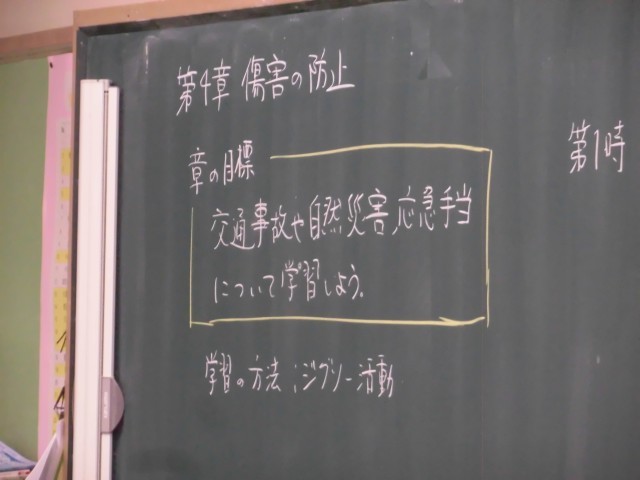 第4章 傷害の防止
第1時
章の目標
交通事故や自然災害、応急手当
について学習しよう。
学習の方法：ジグソー活動